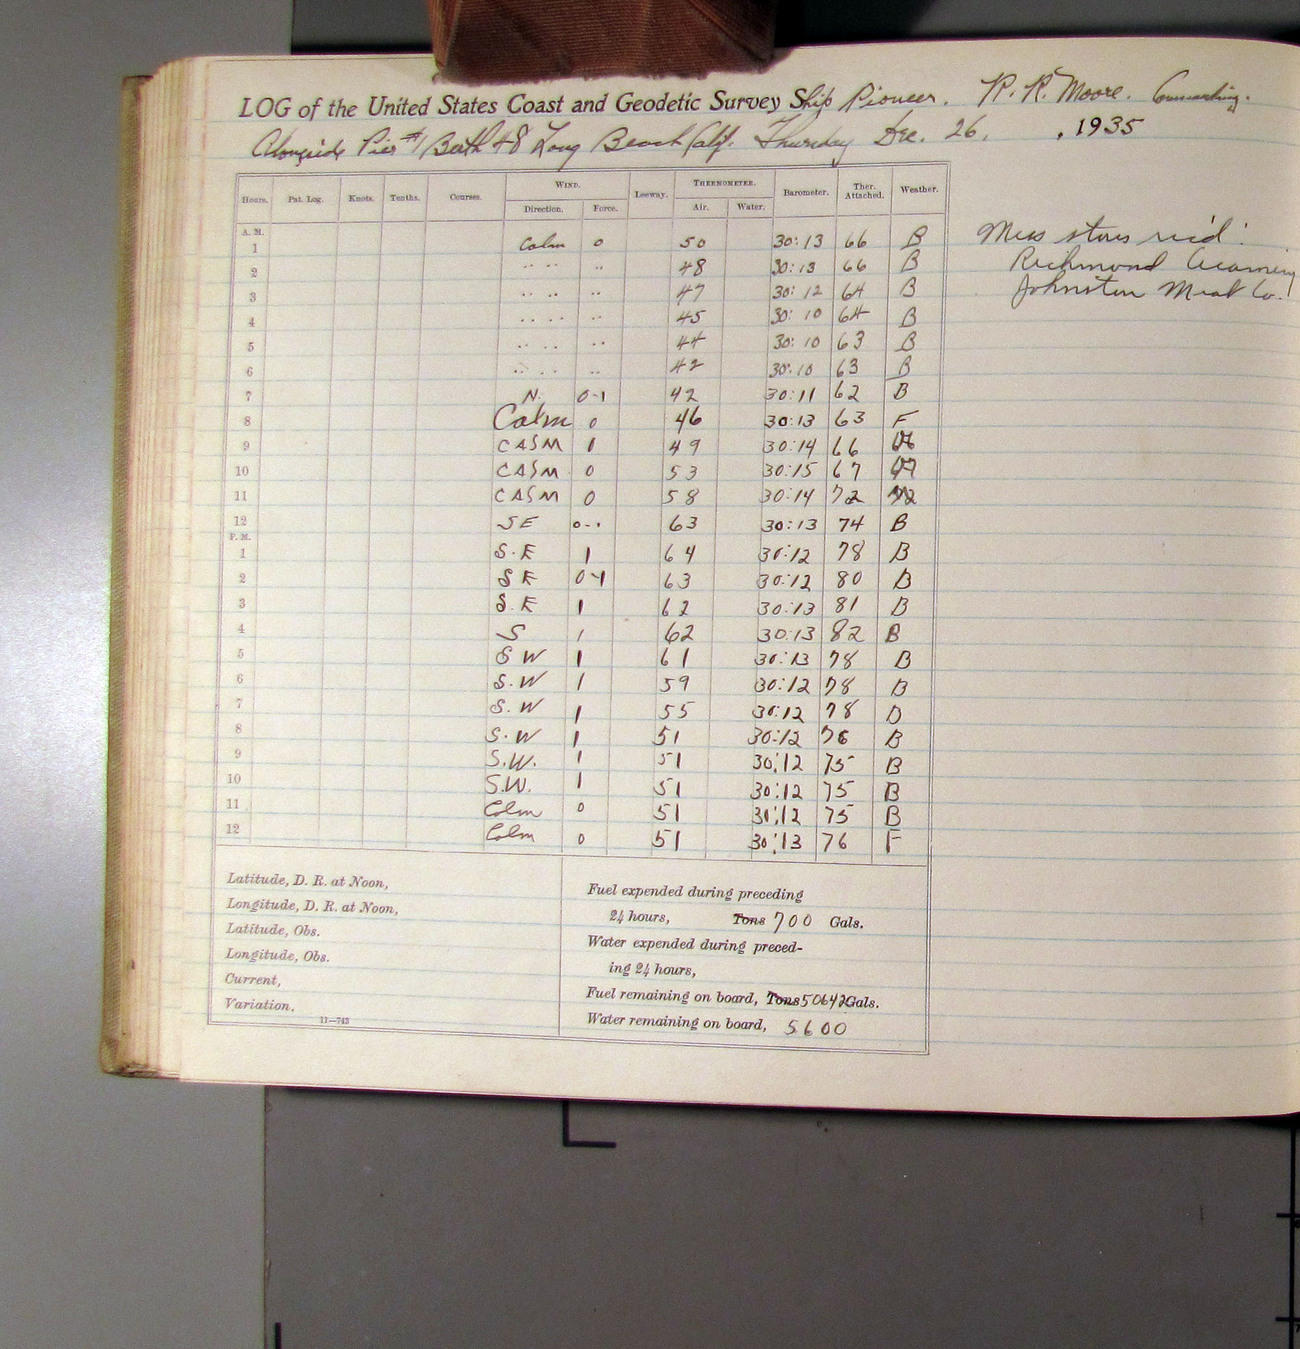 LOG of the United States Coast and Geodetic Survey Ship Pioneer. R. R. Moore. Commanding.
Alongside Pier #1 Berth 48 Long Beach Calif. Thursday Dec. 26. , 1935
Hours. Pat. Log. Knots. Tenths. Courses. WIND. Leeway. THERMOMETER. Barometer. Ther. Attached. Weather.
Direction. Force. Air. Water.
A. M.
1 Calm 0 50 30:13 66 B Mess stores rec'd:
2 " " " 48 30:13 66 B Richmond Creamery
3 " " " 47 30:12 64 B Johnston Meat Co.
4 " " " 45 30:10 64 B
5 " " " 44 30:10 63 B
6 " " " 42 30:10 63 B
7 N. 0-1 42 30:11 62 B
8 Calm 0 46 30:13 63 F
9 CALM 1 49 30:14 66
10 CALM 0 53 30:15 67
11 CALM 0 58 30:14 72
12 SE 0-1 63 30:13 74 B
P. M.
1 S.E 1 64 30:12 78 B
2 SE 0-1 63 30:12 80 B
3 S.E 1 62 30:13 81 B
4 S 1 62 30:13 82 B
5 SW 1 61 30:13 78 B
6 S.W 1 59 30:12 78 B
7 S.W 1 55 30:12 78 B
8 S.W 1 51 30:12 76 B
9 S.W. 1 51 30:12 75 B
10 S.W. 1 51 30:12 75 B
11 Calm 0 51 30:12 75 B
12 Calm 0 51 30:13 76 F
Latitude, D. R. at Noon,
Longitude, D. R. at Noon,
Latitude, Obs.
Longitude, Obs.
Current,
Variation,
11—743
Fuel expended during preceding
24 hours, Tons 700 Gals.
Water expended during preced-
ing 24 hours,
Fuel remaining on board, Tons 50642 Gals.
Water remaining on board, 5600